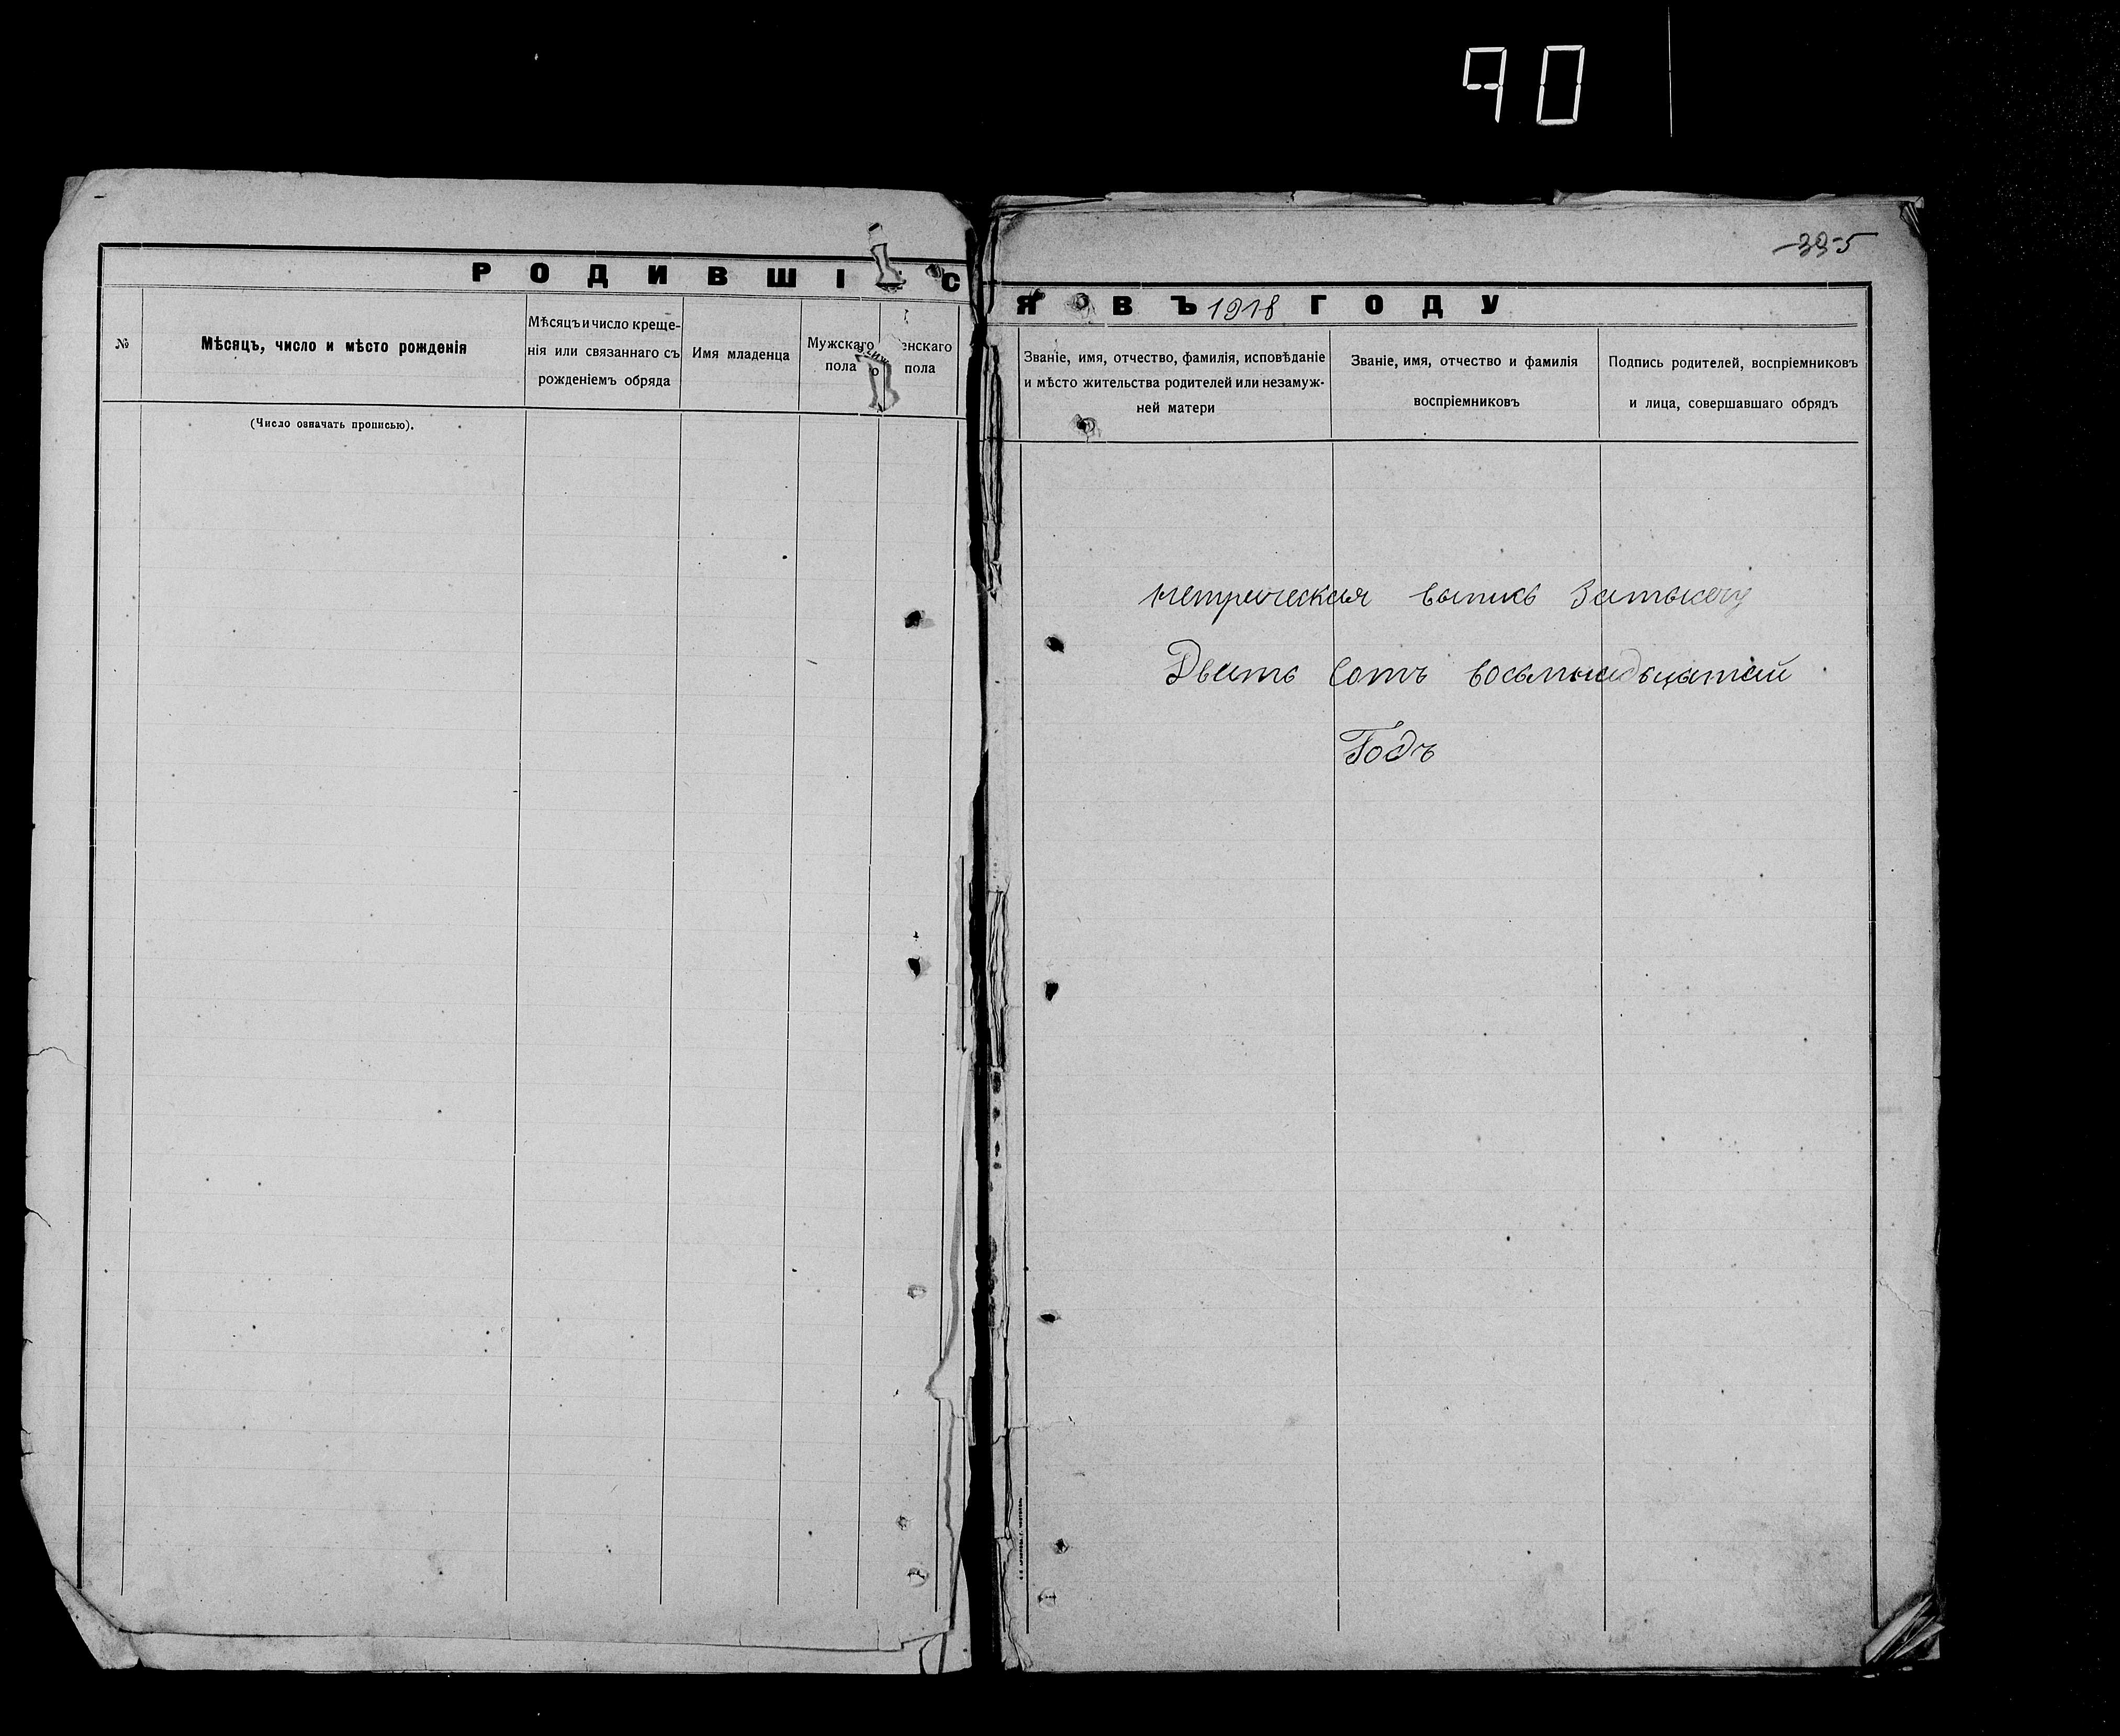 90
-33-5
РОДИВШІ СЯ ВЪ 1918 ГОДУ
№
Мѣсяцъ, число и мѣсто рожденія
(Число означать прописью).
Мѣсяцъ и число креще-
нія или связаннаго съ
рожденіемъ обряда
Имя младенца
Мужскаго
пола
енскаго
пола
Званіе, имя, отчество, фамилія, исповѣданіе
и мѣсто жительства родителей или незамуж-
ней матери
Званіе, имя, отчество и фамилія
воспріемниковъ
Подпись родителей, воспріемниковъ
и лица, совершавшаго обрядъ
метрическая выпись За тысечу
Двить Сотъ восьмнадьцатай
Годъ